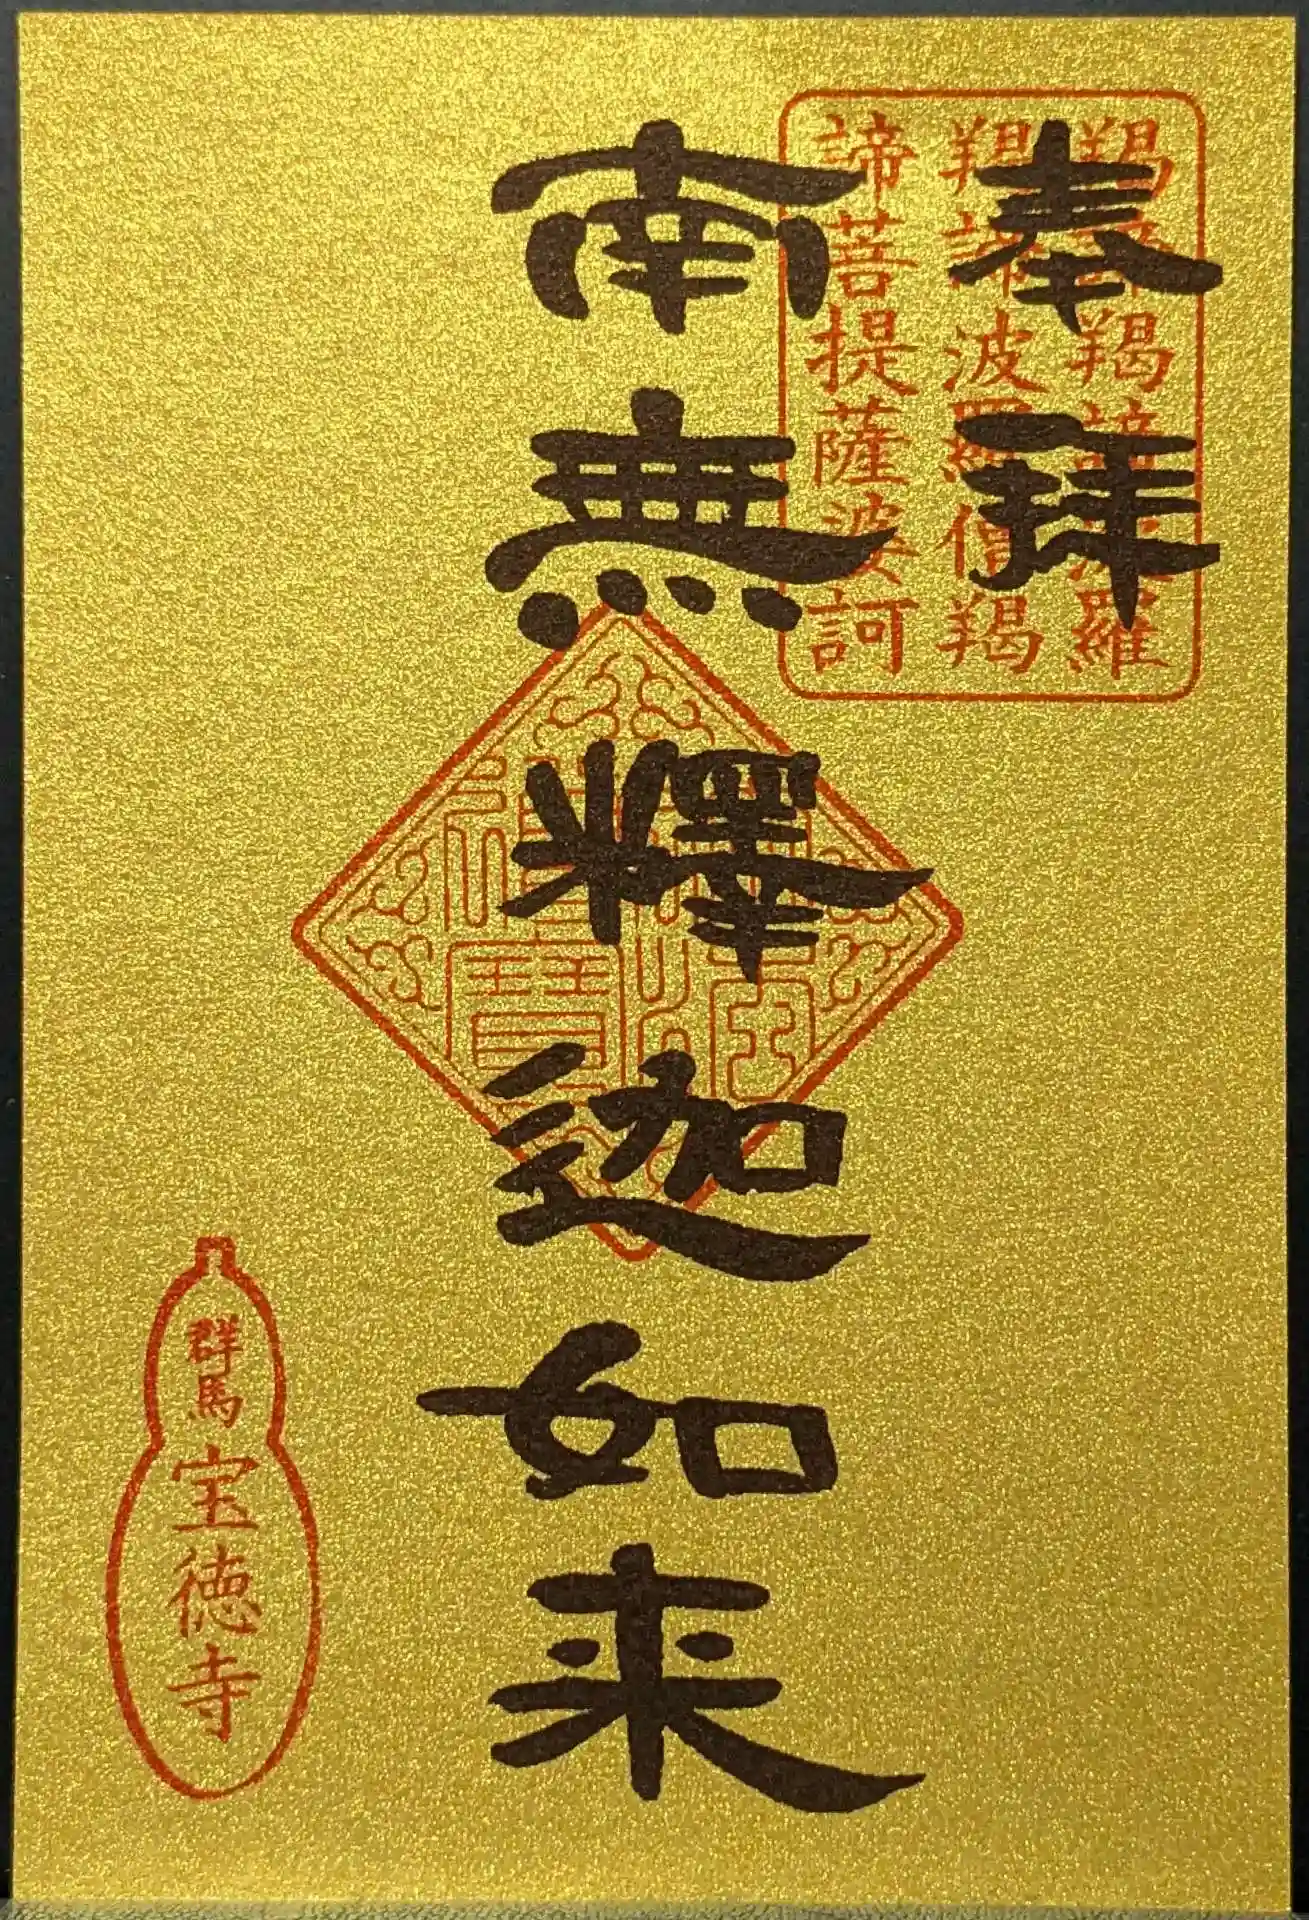 奉拝
羯諦羯諦波羅
羯諦波羅僧羯
諦菩提薩婆訶
南無釋迦如来
群馬宝徳寺